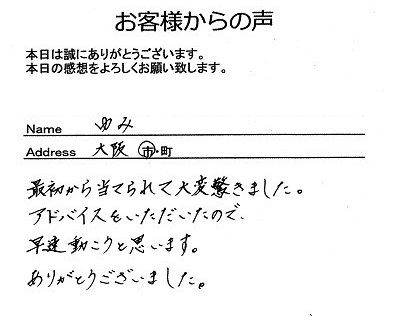 お客様からの声
本日は誠にありがとうございます。
本日の感想をよろしくお願い致します。
Name ゆみ
Address 大阪 市・町
最初から当てられて大変驚きました。
アドバイスをいただいたので、
早速動こうと思います。
ありがとうございました。